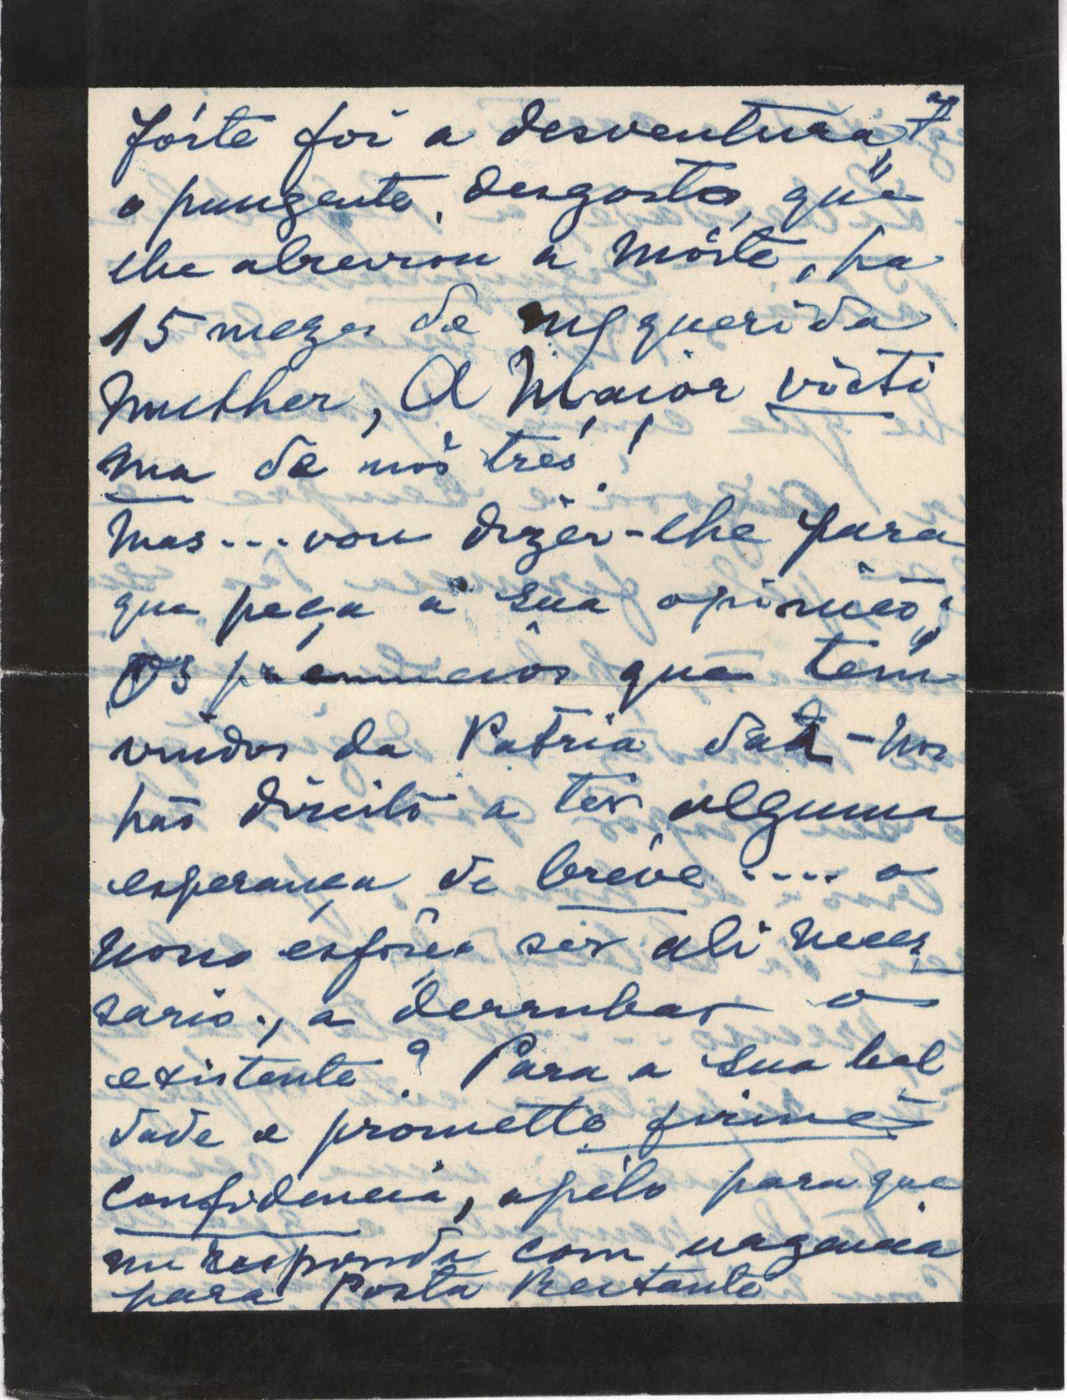 fórte foi a desventura, e
o pungente desgosto, que
lhe abreviou a mórte, ha
15 mezes da mª querida
mulher, A Maior vícti
ma de nós trés!
Mas... vou dizêr-lhe para
que peça a sua opinião;
Os prenuncios que tem
vindos da Patria dão-nos
hão direito a ter alguma
esperança de bréve .... o
nosso esfôrço ser ali neces
sario., a derrubar o
existente? Para a sua leal
dade e prometto firme
confidencia, apélo para que
me responda com urgencia
para Posta Restante